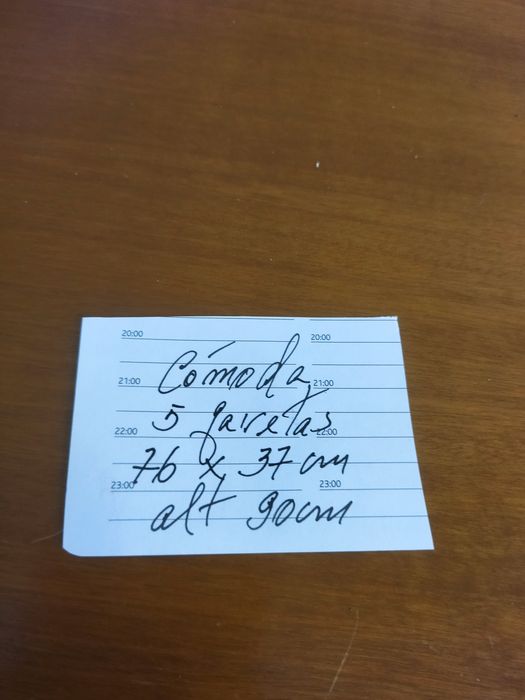 20:00 20:00
Cômoda,
21:00 21:00
5 gavetas
22:00 22:00
76 x 37 cm
23:00 23:00
alt 90cm